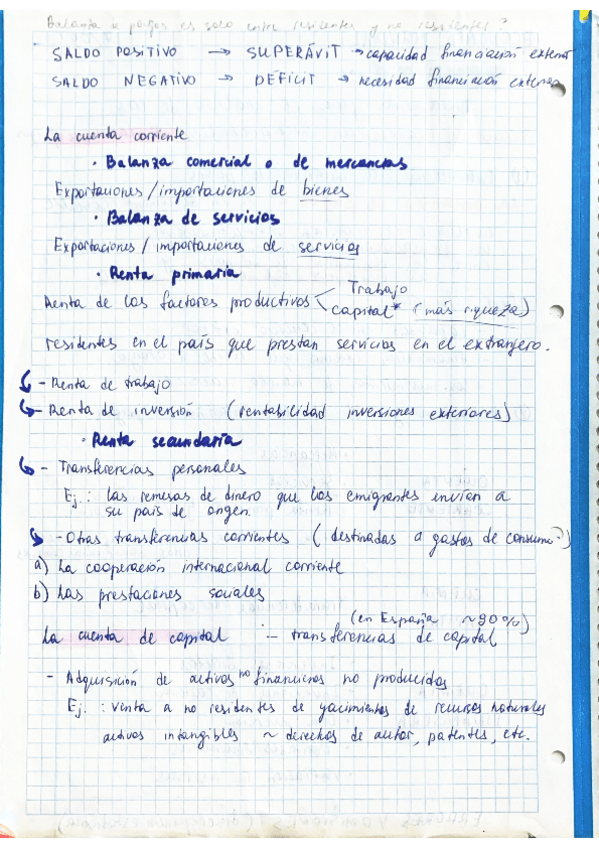 Balanza de pagos es solo entre residentes y no residentes?
SALDO POSITIVO → SUPERÁVIT → capacidad financiación externa
SALDO NEGATIVO → DÉFICIT → necesidad financiación externa
La cuenta corriente
• Balanza comercial o de mercancías
Exportaciones/importaciones de bienes
• Balanza de servicios
Exportaciones/importaciones de servicios
• Renta primaria
Renta de los factores productivos < Trabajo
capital* (más riqueza)
residentes en el país que prestan servicios en el extranjero.
- Renta de trabajo
- Renta de inversión (rentabilidad inversiones exteriores)
• Renta secundaria
- Transferencias personales
Ej.: las remesas de dinero que los emigrantes envían a
su país de origen.
- Otras transferencias corrientes (destinadas a gastos de consumo?)
a) La cooperación internacional corriente
b) Las prestaciones sociales
(en España ~90%)
La cuenta de capital :- transferencias de capital
- Adquisición de activos no financieros no producidos
Ej.: venta a no residentes de yacimientos de recursos naturales
activos intangibles ~ derechos de autor, patentes, etc.